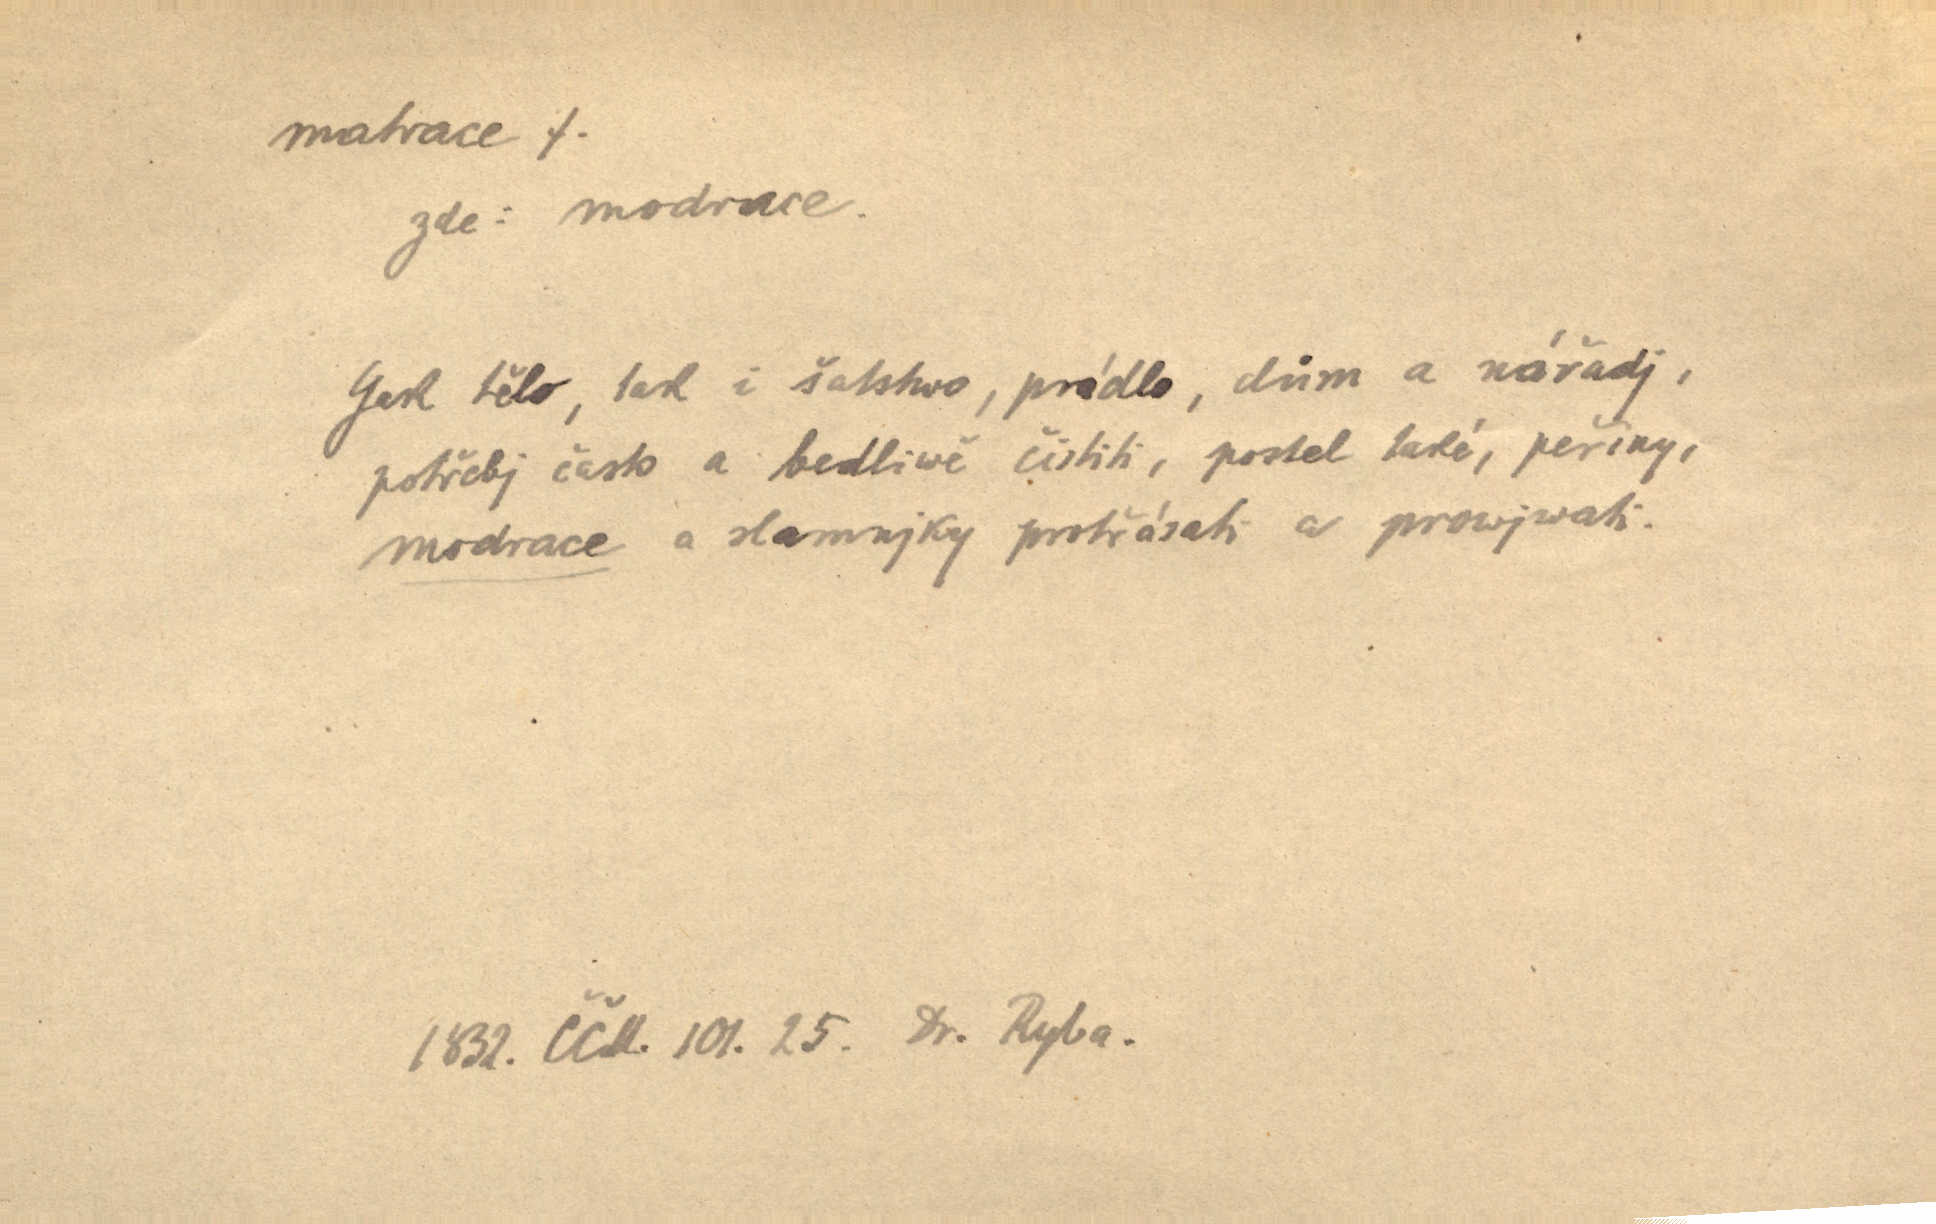 matrace f.
zde: modrace.
Gak tělo, tak i šatstwo, prádlo, dům a nářadj,
potřebj často a bedliwě čistiti, postel také, peřiny,
modrace a slamnjky protřásati a prowjwati.
1832. ČČM. 101. 25. Dr. Ryba.